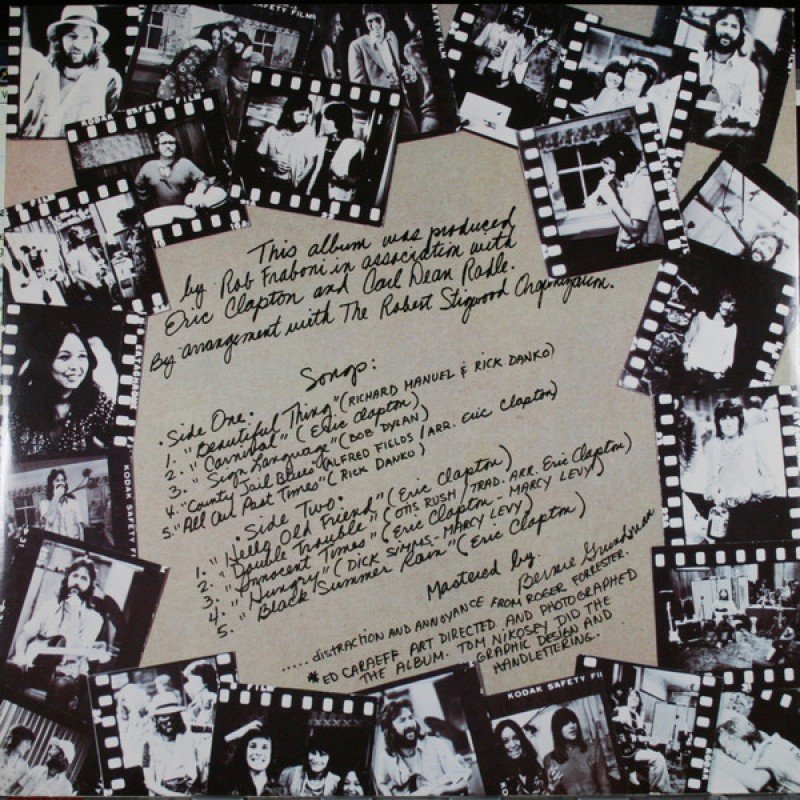 SAFETY FILM
KODAK SAFETY FILM
This album was produced
by Rob Fraboni in association with
Eric Clapton and Carl Dean Radle.
By arrangement with The Robert Stigwood Organization.
Songs:
• Side One •
1. "Beautiful Thing" (RICHARD MANUEL & RICK DANKO)
2. "Carnival" (Eric Clapton)
3. "Sign Language" (BOB DYLAN)
4. "County Jail Blues (ALFRED FIELDS / ARR. Eric Clapton)
5. "All Our Past Times" (RICK DANKO)
• Side Two •
1. "Hello Old Friend" (Eric Clapton)
2. "Double Trouble" (OTIS RUSH / TRAD. ARR. Eric Clapton)
3. "Innocent Times" (Eric Clapton - MARCY LEVY)
4. "Hungry" (DICK SIMMS - MARCY LEVY)
5. "Black Summer Rain" (Eric Clapton)
Mastered by:
Bernie Grundman
..... DISTRACTION AND ANNOYANCE FROM ROGER FORRESTER.
* ED CARAEFF ART DIRECTED AND PHOTOGRAPHED
THE ALBUM. TOM NIKOSEY DID THE
GRAPHIC DESIGN AND
HANDLETTERING.
KODAK SAFETY FI